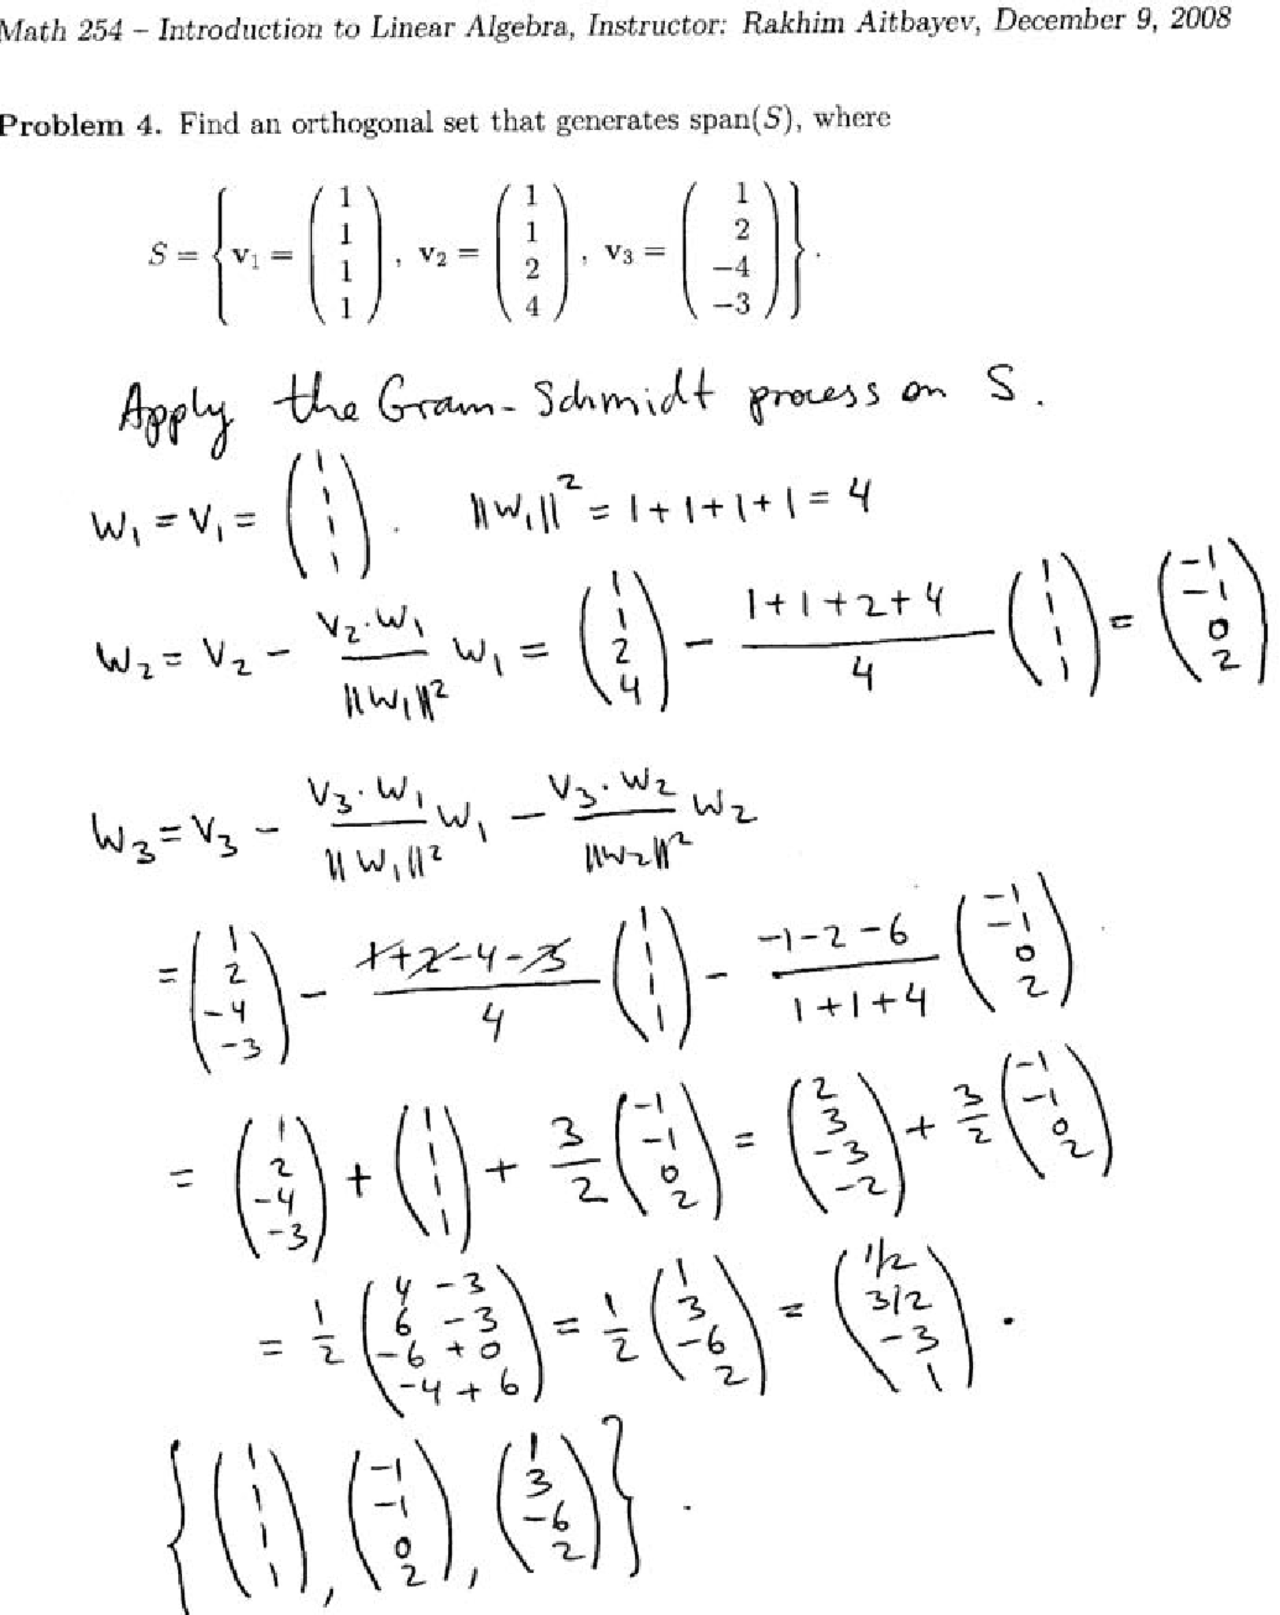 Math 254 – Introduction to Linear Algebra, Instructor: Rakhim Aitbayev, December 9, 2008
Problem 4. Find an orthogonal set that generates span(S), where
S = { v₁ = (1 1 1 1), v₂ = (1 1 2 4), v₃ = (1 2 −4 −3) }.
Apply the Gram-Schmidt process on S.
W₁ = V₁ = (1 1 1 1). ||W₁||² = 1+1+1+1 = 4
W₂ = V₂ − (V₂·W₁)/||W₁||² W₁ = (1 1 2 4) − (1+1+2+4)/4 (1 1 1 1) = (−1 −1 0 2)
W₃ = V₃ − (V₃·W₁)/||W₁||² W₁ − (V₃·W₂)/||W₂||² W₂
= (1 2 −4 −3) − (1+2−4−3)/4 (1 1 1 1) − (−1−2−6)/(1+1+4) (−1 −1 0 2)
= (1 2 −4 −3) + (1 1 1 1) + 3/2 (−1 −1 0 2) = (2 3 −3 −2) + 3/2 (−1 −1 0 2)
= 1/2 (4−3 6−3 −6+0 −4+6) = 1/2 (1 3 −6 2) = (1/2 3/2 −3 1).
{ (1 1 1 1), (−1 −1 0 2), (1 3 −6 2) }.